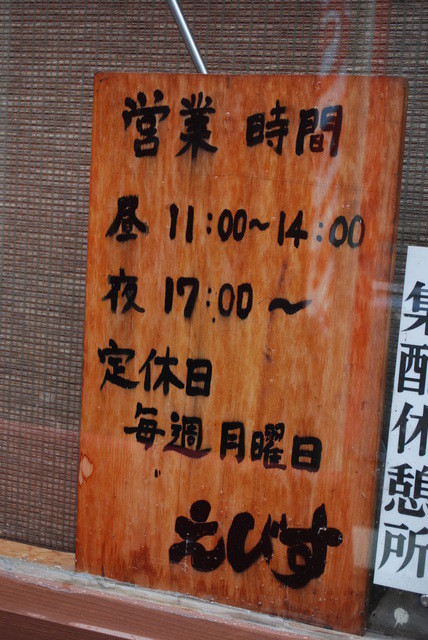 営業時間
昼 11:00〜14:00
夜 17:00〜
定休日
毎週月曜日
えびす
集配休憩所